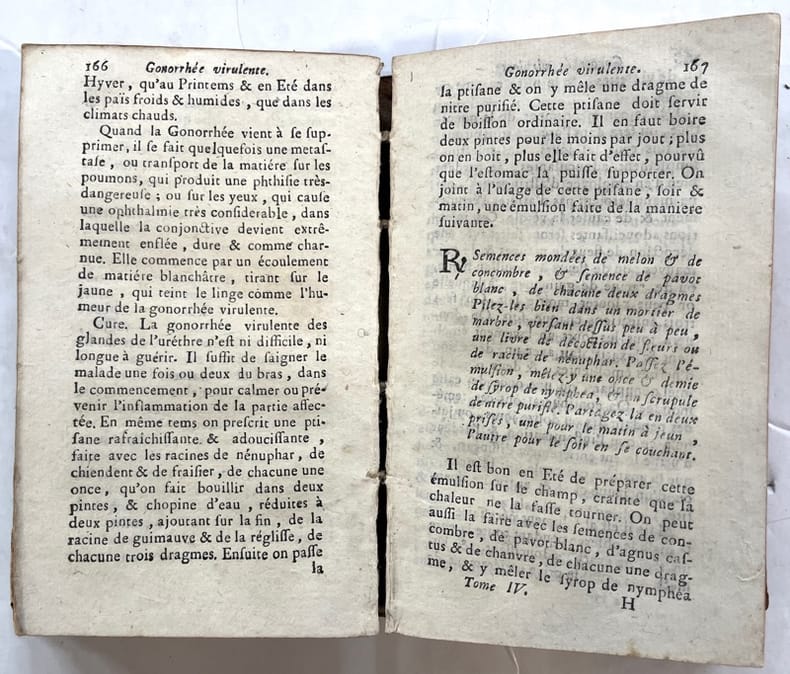 166 Gonorrhée virulente.
Hyver, qu'au Printems & en Eté dans
les païs froids & humides, que dans les
climats chauds.
Quand la Gonorrhée vient à ſe ſup-
primer, il ſe fait quelquefois une metaſ-
taſe, ou tranſport de la matiére ſur les
poumons, qui produit une phthiſie très-
dangereuſe; ou ſur les yeux, qui cauſe
une ophthalmie très conſiderable, dans
laquelle la conjonctive devient extrê-
mement enflée, dure & comme char-
nue. Elle commence par un écoulement
de matiére blanchâtre, tirant ſur le
jaune, qui teint le linge comme l'hu-
meur de la gonorrhée virulente.
Cure. La gonorrhée virulente des
glandes de l'uréthre n'eſt ni difficile, ni
longue à guérir. Il ſuffit de ſaigner le
malade une fois ou deux du bras, dans
le commencement, pour calmer ou pré-
venir l'inflammation de la partie affec-
tée. En même tems on preſcrit une pti-
ſane rafraichiſſante & adouciſſante,
faite avec les racines de nénuphar, de
chiendent & de fraiſier, de chacune une
once, qu'on fait bouillir dans deux
pintes, & chopine d'eau, réduites à
deux pintes, ajoutant ſur la fin, de la
racine de guimauve & de la régliſſe, de
chacune trois dragmes. Enſuite on paſſe
la
Gonorrhée virulente. 167
la ptiſane & on y mêle une dragme de
nitre purifié. Cette ptiſane doit ſervir
de boiſſon ordinaire. Il en faut boire
deux pintes pour le moins par jour; plus
on en boit, plus elle fait d'effet, pourvû
que l'eſtomac la puiſſe ſupporter. On
joint à l'uſage de cette ptiſane, ſoir &
matin, une émulſion faite de la maniere
ſuivante.
℞ Semences mondées de melon & de
concombre, & ſemence de pavot
blanc, de chacune deux dragmes
Pilez-les bien dans un mortier de
marbre, verſant deſſus peu à peu,
une livre de décoction de fleurs ou
de racine de nénuphar. Paſſez l'é-
mulſion, mêlez-y une once & demie
de ſyrop de nymphéa, & un ſcrupule
de nitre purifié. Partagez la en deux
priſes, une pour le matin à jeun,
l'autre pour le ſoir en ſe couchant.
Il eſt bon en Eté de préparer cette
émulſion ſur le champ, crainte que la
chaleur ne la faſſe tourner. On peut
auſſi la faire avec les ſemences de con-
combre, de pavot blanc, d'agnus caſ-
tus & de chanvre, de chacune une drag-
me, & y mêler le ſyrop de nymphéa
Tome IV. H